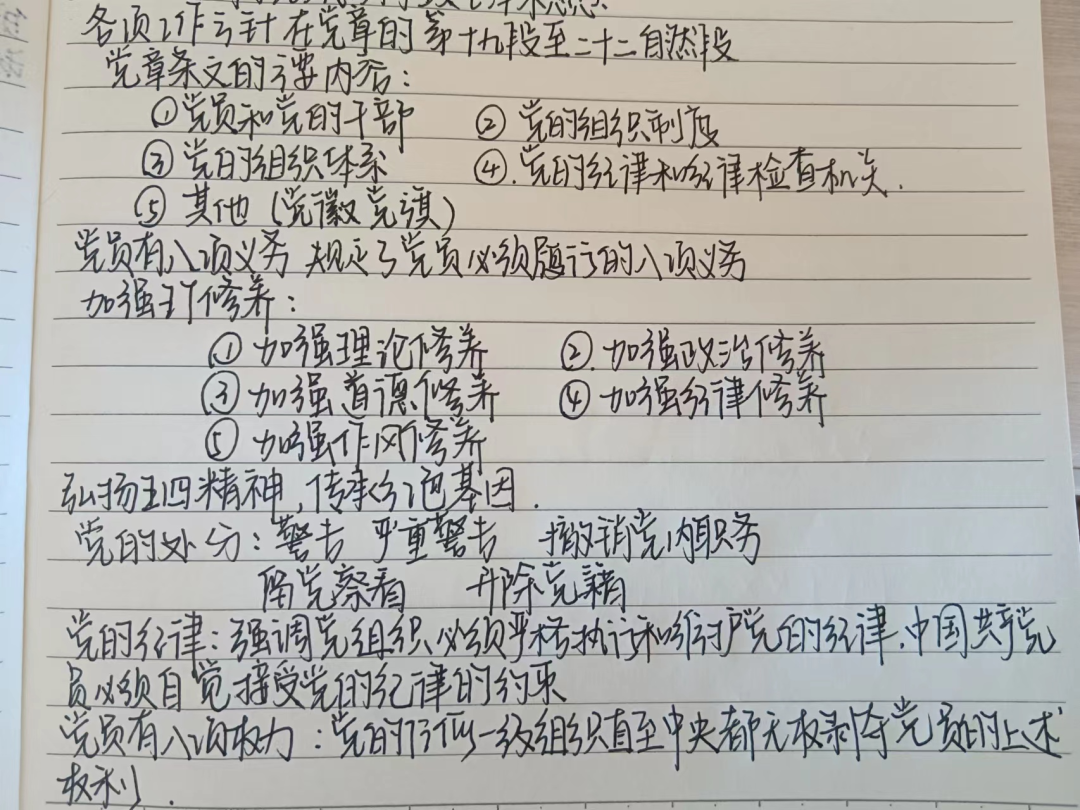 各项工作方针在党章的第十九段至二十二自然段
党章条文的主要内容：
①党员和党的干部 ②党的组织制度
③党的组织体系 ④.党的纪律和纪律检查机关.
⑤其他（党徽党旗）
党员有八项义务 规定了党员必须履行的八项义务
加强修养：
①加强理论修养 ②.加强政治修养
③加强道德修养 ④加强纪律修养
⑤加强作风修养
弘扬五四精神,传承红色基因.
党的处分：警告 严重警告 撤销党内职务
留党察看 开除党籍
党的纪律：强调党组织必须严格执行和维护党的纪律.中国共产党
员必须自觉接受党的纪律的约束
党员有八项权力：党的任何一级组织直至中央都无权剥夺党员的上述
权利.